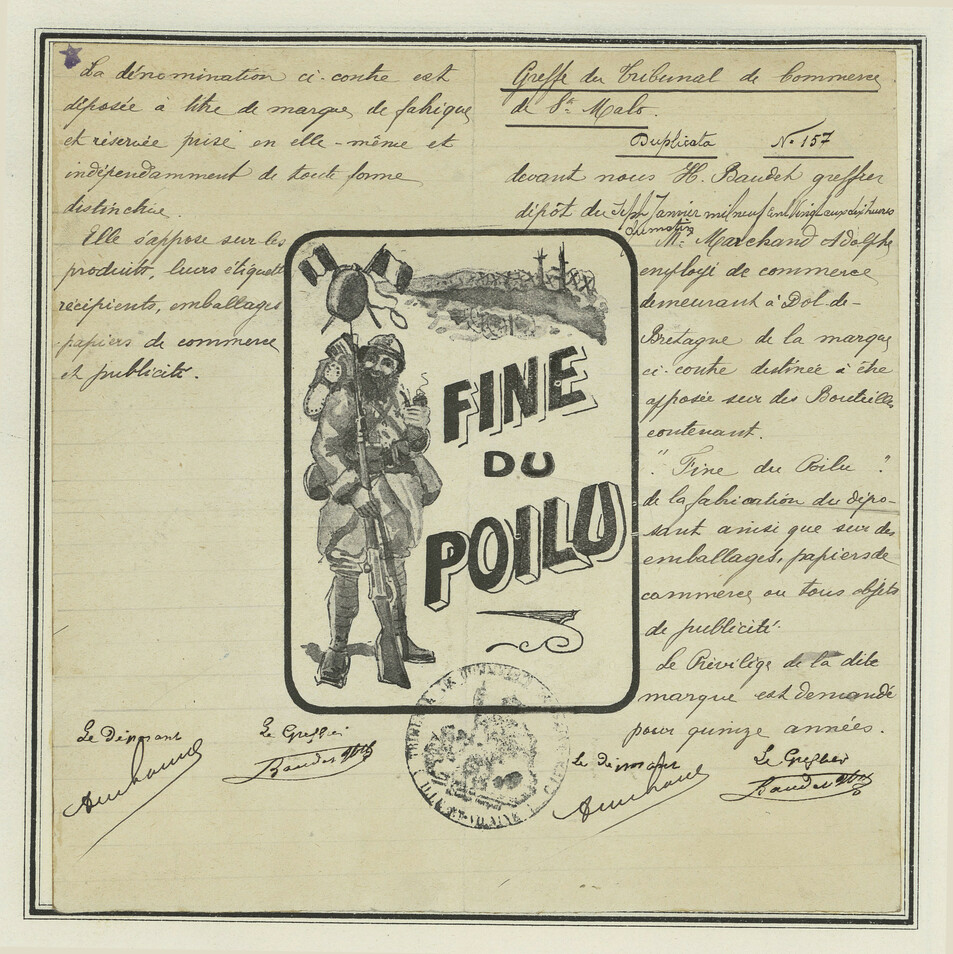 La dénomination ci-contre est
déposée à titre de marque de fabrique
et réservée prise en elle-même et
indépendamment de toute forme
distinctive.
Elle s'appose sur les
produits, leurs étiquettes
récipients, emballages
papiers de commerce
et publicité.
Le Déposant
Le Greffier
Greffe du Tribunal de Commerce
de St Malo.
Duplicata N° 157
devant nous H. Baudet greffier
dépôt du Sept Janvier mil neuf cent vingt aux dix heures
du matin
Mr. Marchand Adolphe
employé de commerce
demeurant à Dol-de-
Bretagne de la marque
ci-contre destinée à être
apposée sur des Bouteilles
contenant.
"Fine du Poilu"
de la fabrication du dépo-
sant ainsi que sur des
emballages, papiers de
commerce ou tous objets
de publicité.
Le Privilège de la dite
marque est demandé
pour quinze années.
le déposant
Le Greffier
FINE
DU
POILU
ILLE-ET-VILAINE